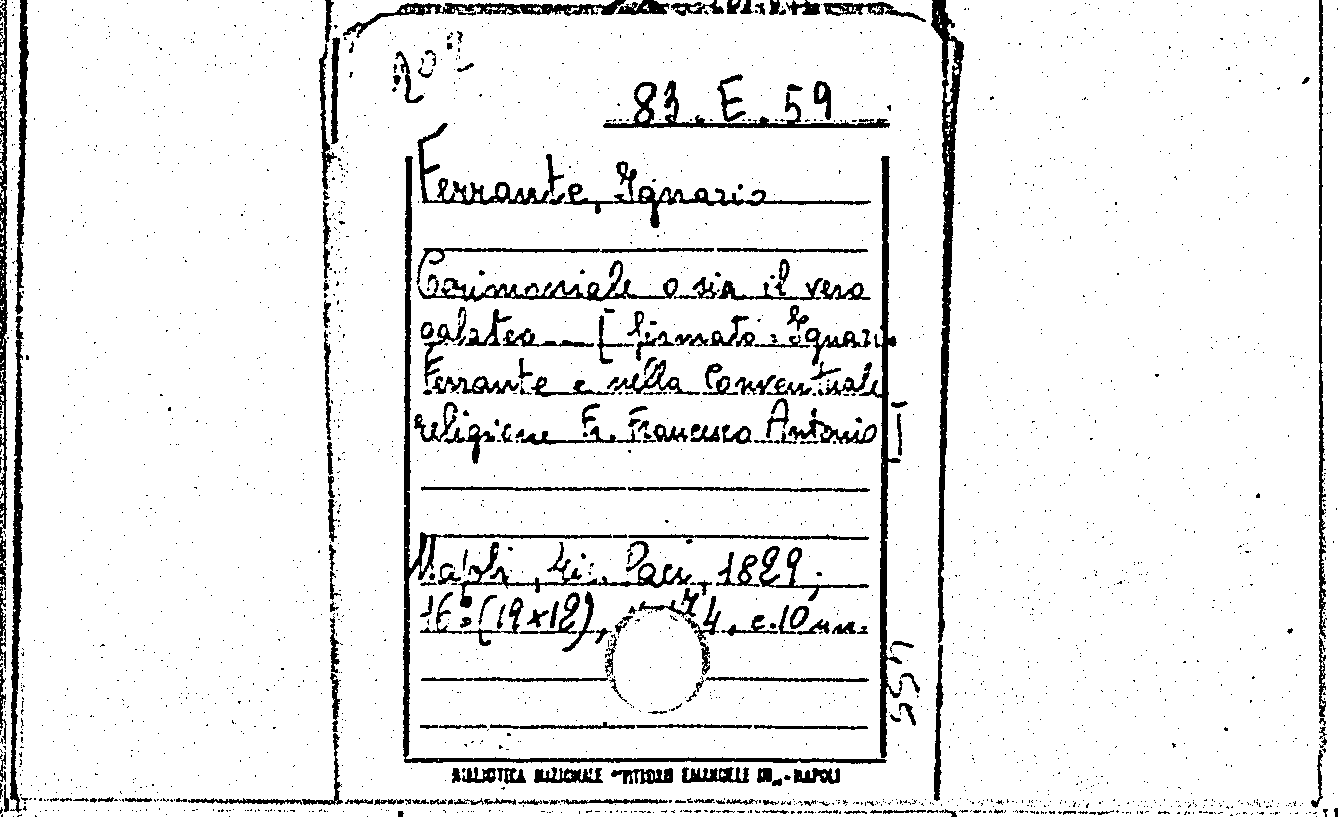 202
83. E. 59
Ferrante, Ignazio
Cerimoniale o sia il vero
galateo... [firmato: Ignazio
Ferrante e nella Conventuale
religione Fr. Francesco Antonio]
Napoli, Tip. Paci, 1829;
16° (19x12), 4, c. 10 nn.
BIBLIOTECA NAZIONALE "VITTORIO EMANUELE III" - NAPOLI